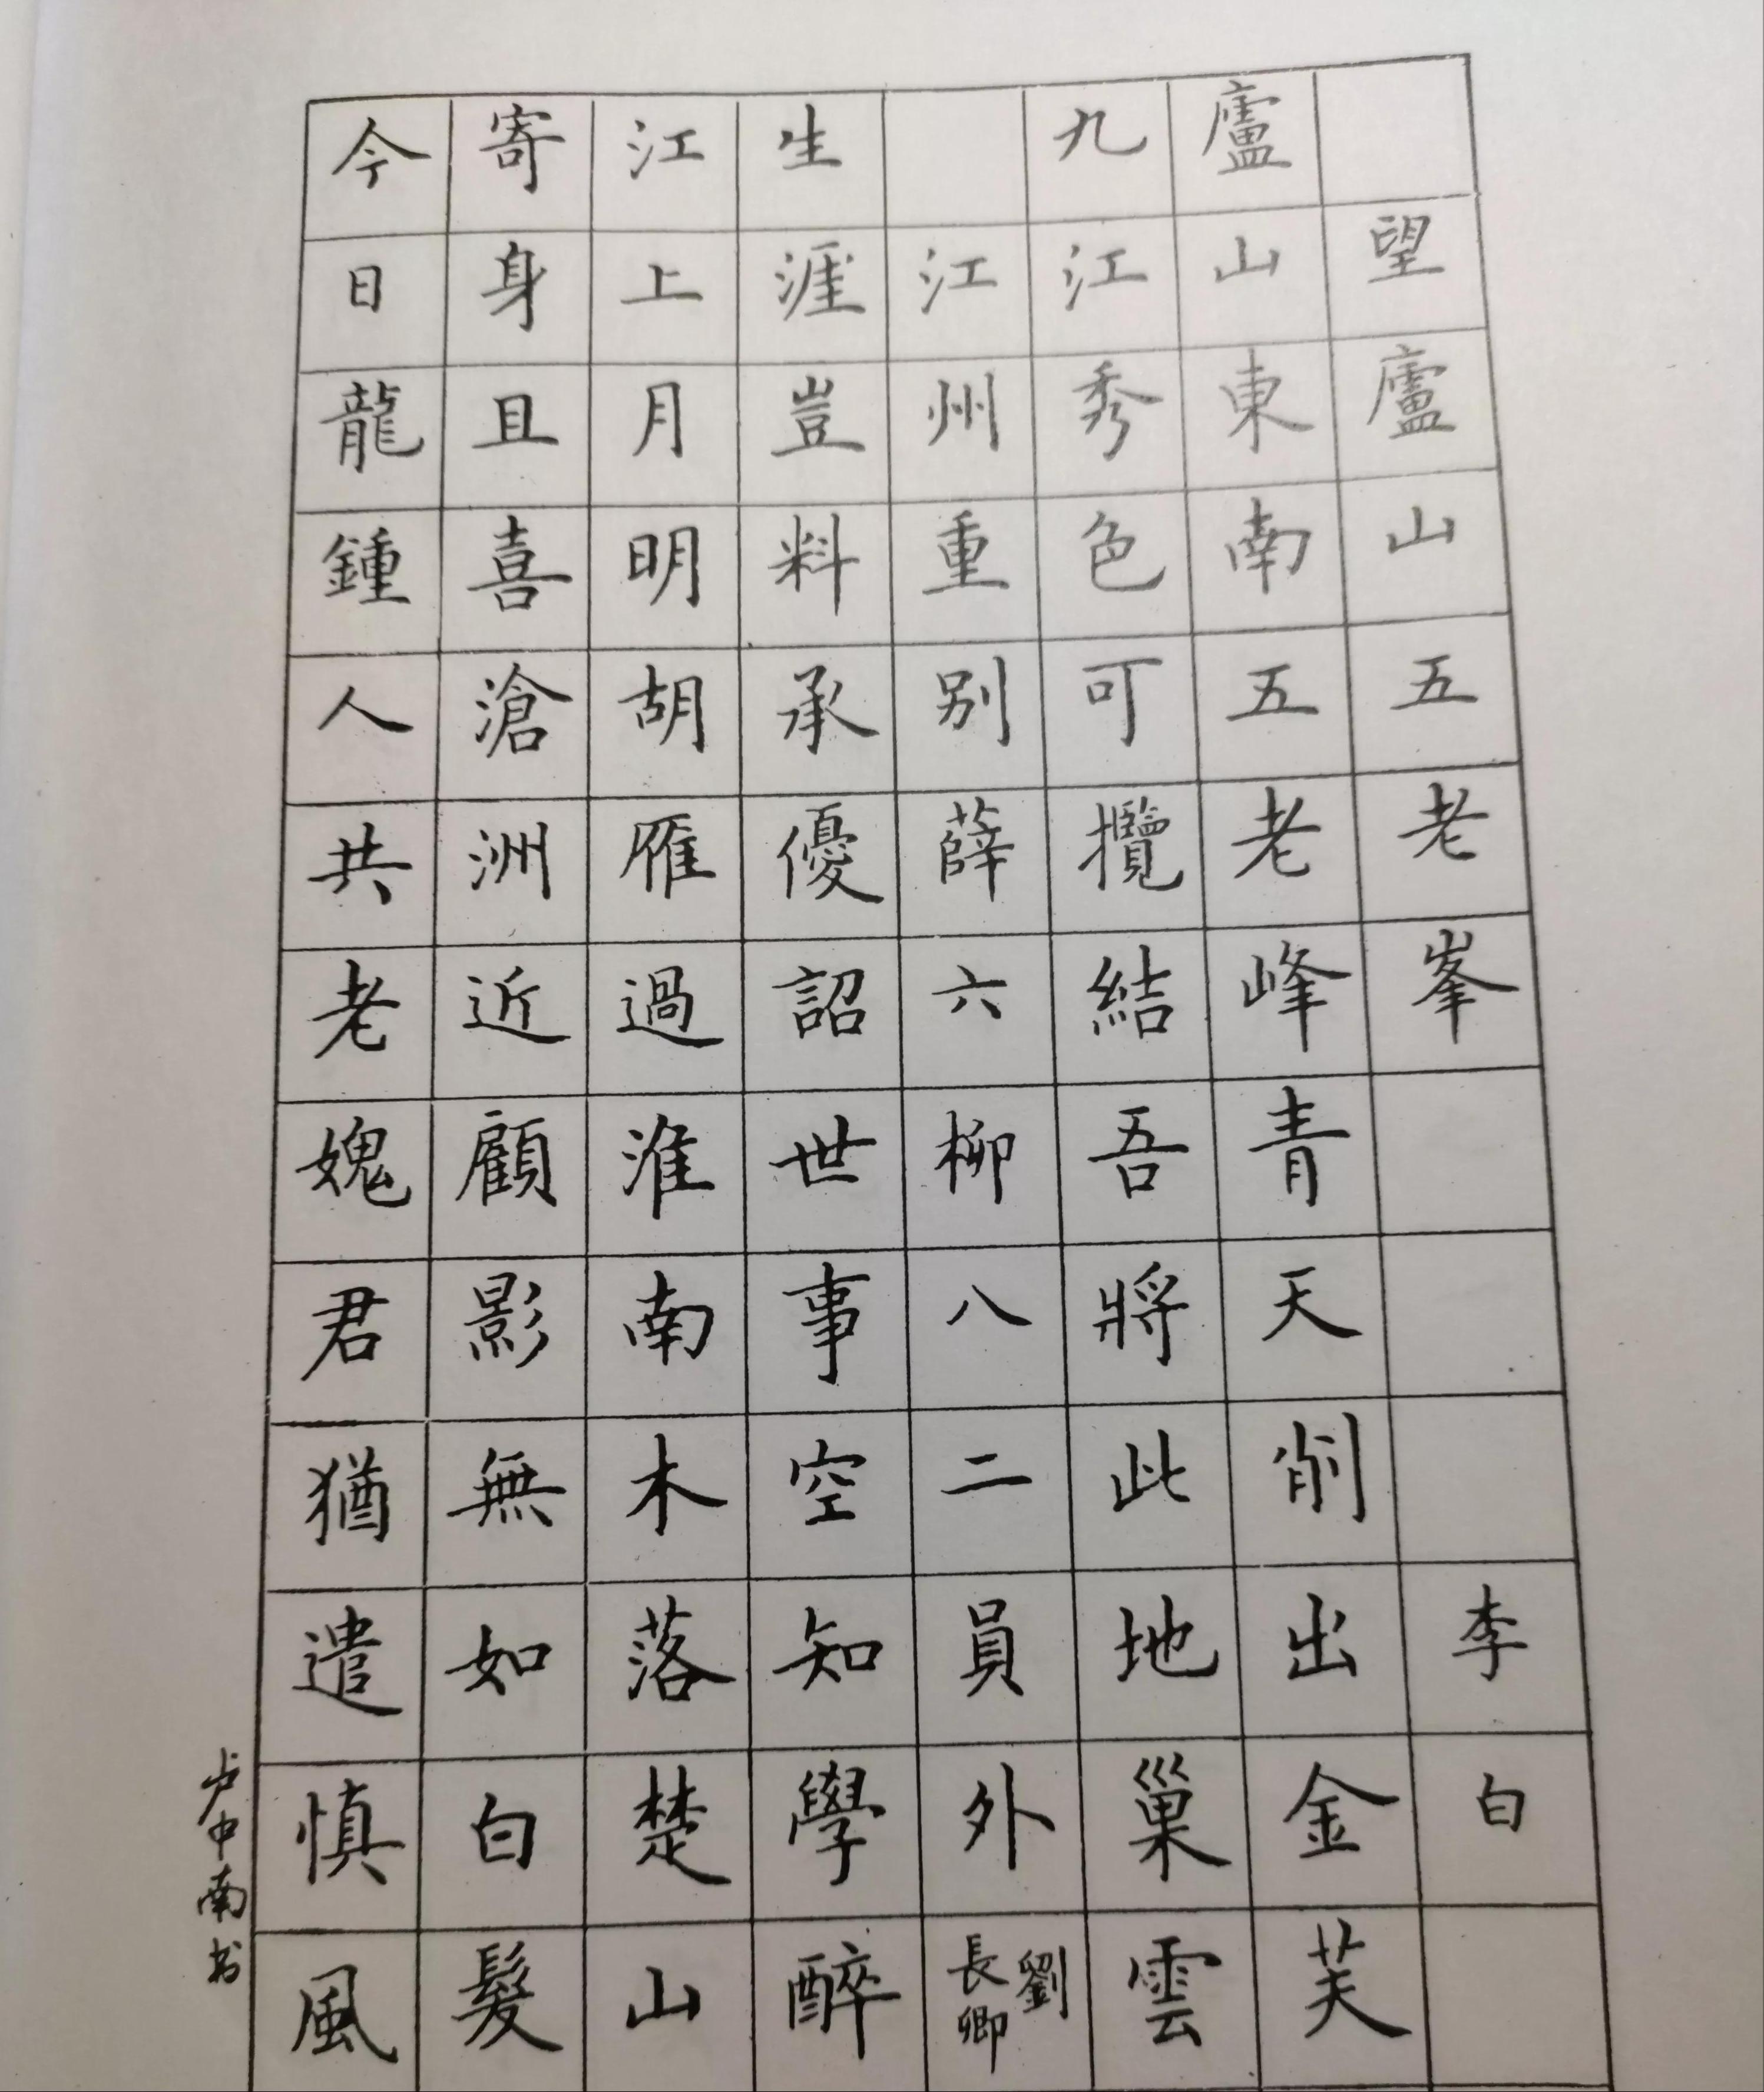 望廬山五老峯 李白
廬山東南五老峰青天削出金芙
九江秀色可攬結吾將此地巢雲
江州重別薛六柳八二員外 劉長卿
生涯豈料承優詔世事空知學醉
江上月明胡雁過淮南木落楚山
寄身且喜滄洲近顧影無如白髮
今日龍鍾人共老媿君猶遣慎風
卢中南书